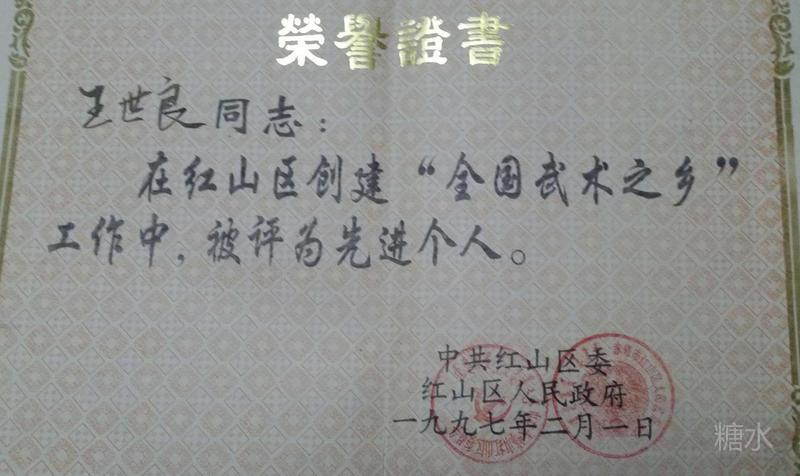 榮譽證書
王世良同志：
在红山区创建“全国武术之乡”
工作中，被评为先进个人。
中共红山区委
红山区人民政府
一九九七年二月一日
糖水